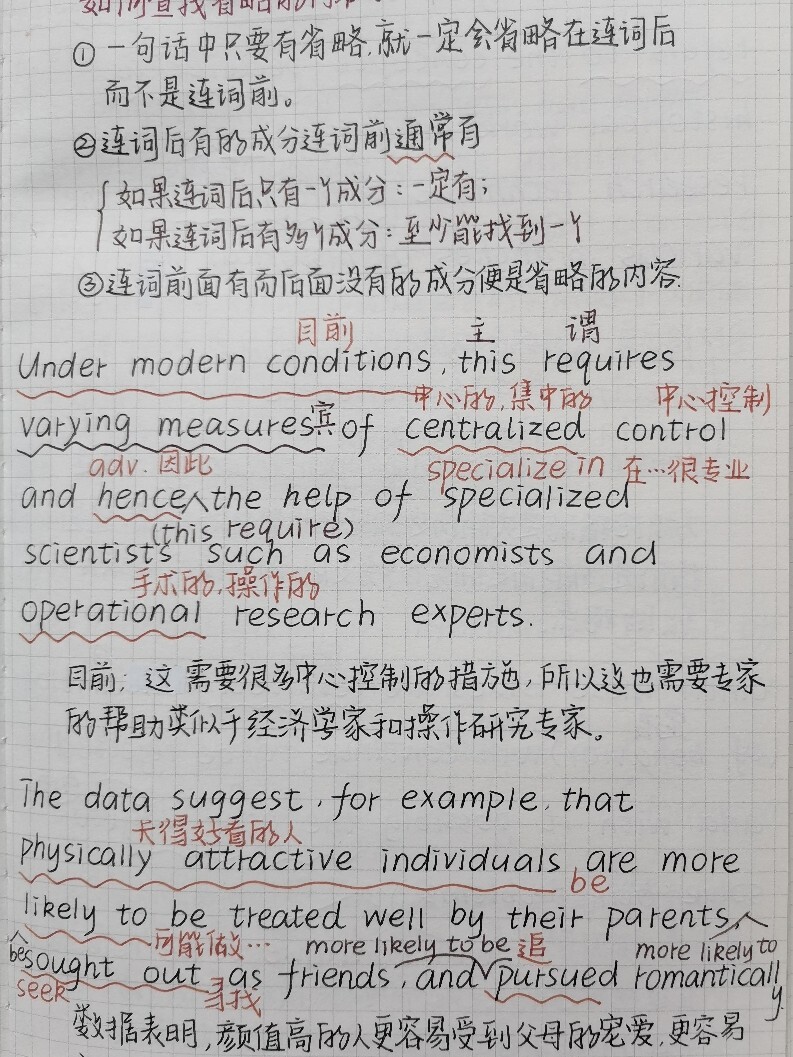 如何查找省略的
① 一句话中只要有省略,就一定会省略在连词后
而不是连词前。
②连词后有的成分连词前通常有
如果连词后只有一个成分:一定有;
如果连词后有多个成分:至少能找到一个
③连词前面有而后面没有的成分便是省略的内容.
目前 主 谓
Under modern conditions, this requires
中心的,集中的 中心控制
varying measures宾 of centralized control
adv. 因此 specialize in 在…很专业
and hence the help of specialized
(this require)
scientists such as economists and
手术的,操作的
operational research experts.
目前,这需要很多中心控制的措施,所以这也需要专家
的帮助类似于经济学家和操作研究专家。
The data suggest, for example, that
长得好看的人
physically attractive individuals are more
be
likely to be treated well by their parents,
be 可能做… more likely to be 追 more likely to
sought out as friends, and pursued romantically.
seek 寻找
数据表明,颜值高的人更容易受到父母的宠爱,更容易